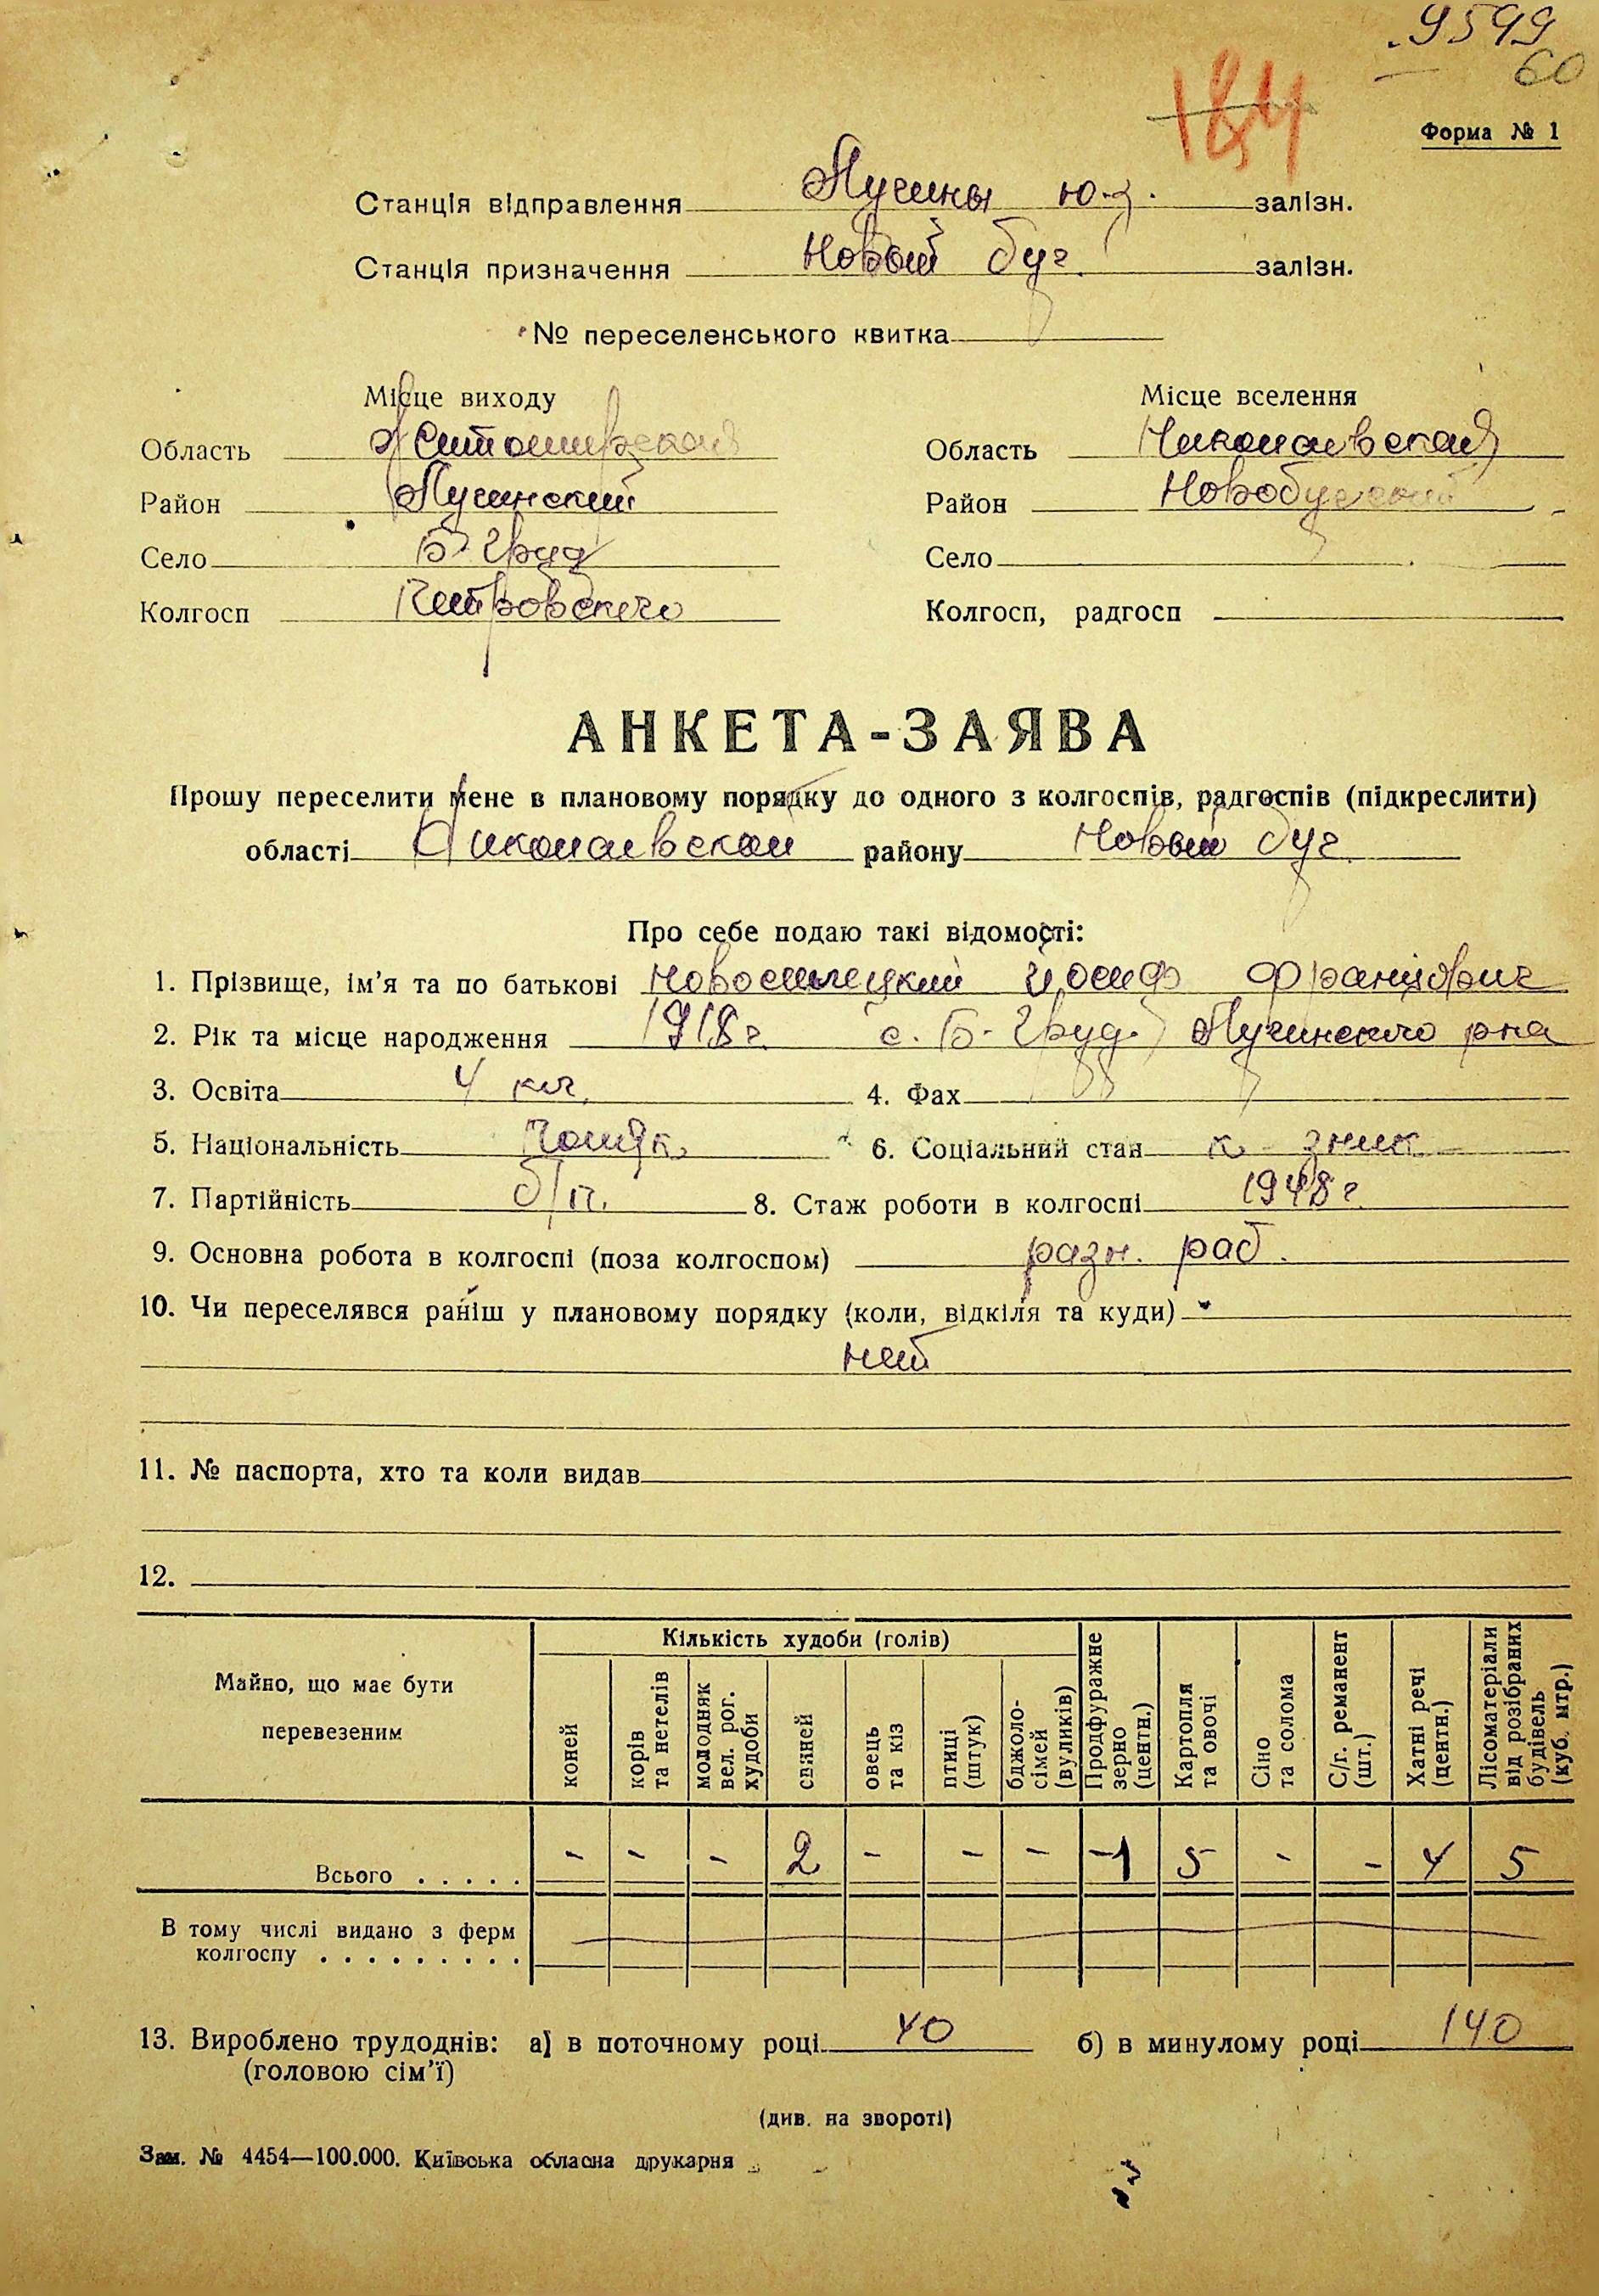 9599
60
184
Форма № 1
Станція відправлення Лучины ю-з. залізн.
Станція призначення Новый Буг. залізн.
№ переселенського квитка
Місце виходу Місце вселення
Область Житомирская Область Николаевская
Район Лучинский Район Новобугский
Село Б-Груд Село
Колгосп Петровского Колгосп, радгосп
АНКЕТА-ЗАЯВА
Прошу переселити мене в плановому порядку до одного з колгоспів, радгоспів (підкреслити)
області Николаевской району Новый Буг.
Про себе подаю такі відомості:
1. Прізвище, ім'я та по батькові Новосилецкий Йосиф Францович
2. Рік та місце народження 1918 г. с. Б-Груд. Лучинского р-на
3. Освіта 4 кл. 4. Фах
5. Національність Поляк. 6. Соціальний стан к-зник
7. Партійність б/п. 8. Стаж роботи в колгоспі 1948 г.
9. Основна робота в колгоспі (поза колгоспом) разн. раб.
10. Чи переселявся раніш у плановому порядку (коли, відкіля та куди)
нет
11. № паспорта, хто та коли видав
12.
Майно, що має бути перевезеним
Кількість худоби (голів)
коней
корів та нетелів
молодняк вел. рог. худоби
свиней
овець та кіз
птиці (штук)
бджоло-сімей (вуликів)
Продфуражне зерно (центн.)
Картопля та овочі
Сіно та солома
С/г. реманент (шт.)
Хатні речі (центн.)
Лісоматеріали від розібраних будівель (куб. мтр.)
Всього . . . . . - - - 2 - - - -1 5 - - 4 5
В тому числі видано з ферм
колгоспу . . . . . . . . .
13. Вироблено трудоднів: а) в поточному році 40 б) в минулому році 140
(головою сім'ї)
(див. на звороті)
Зам. № 4454—100.000. Київська обласна друкарня